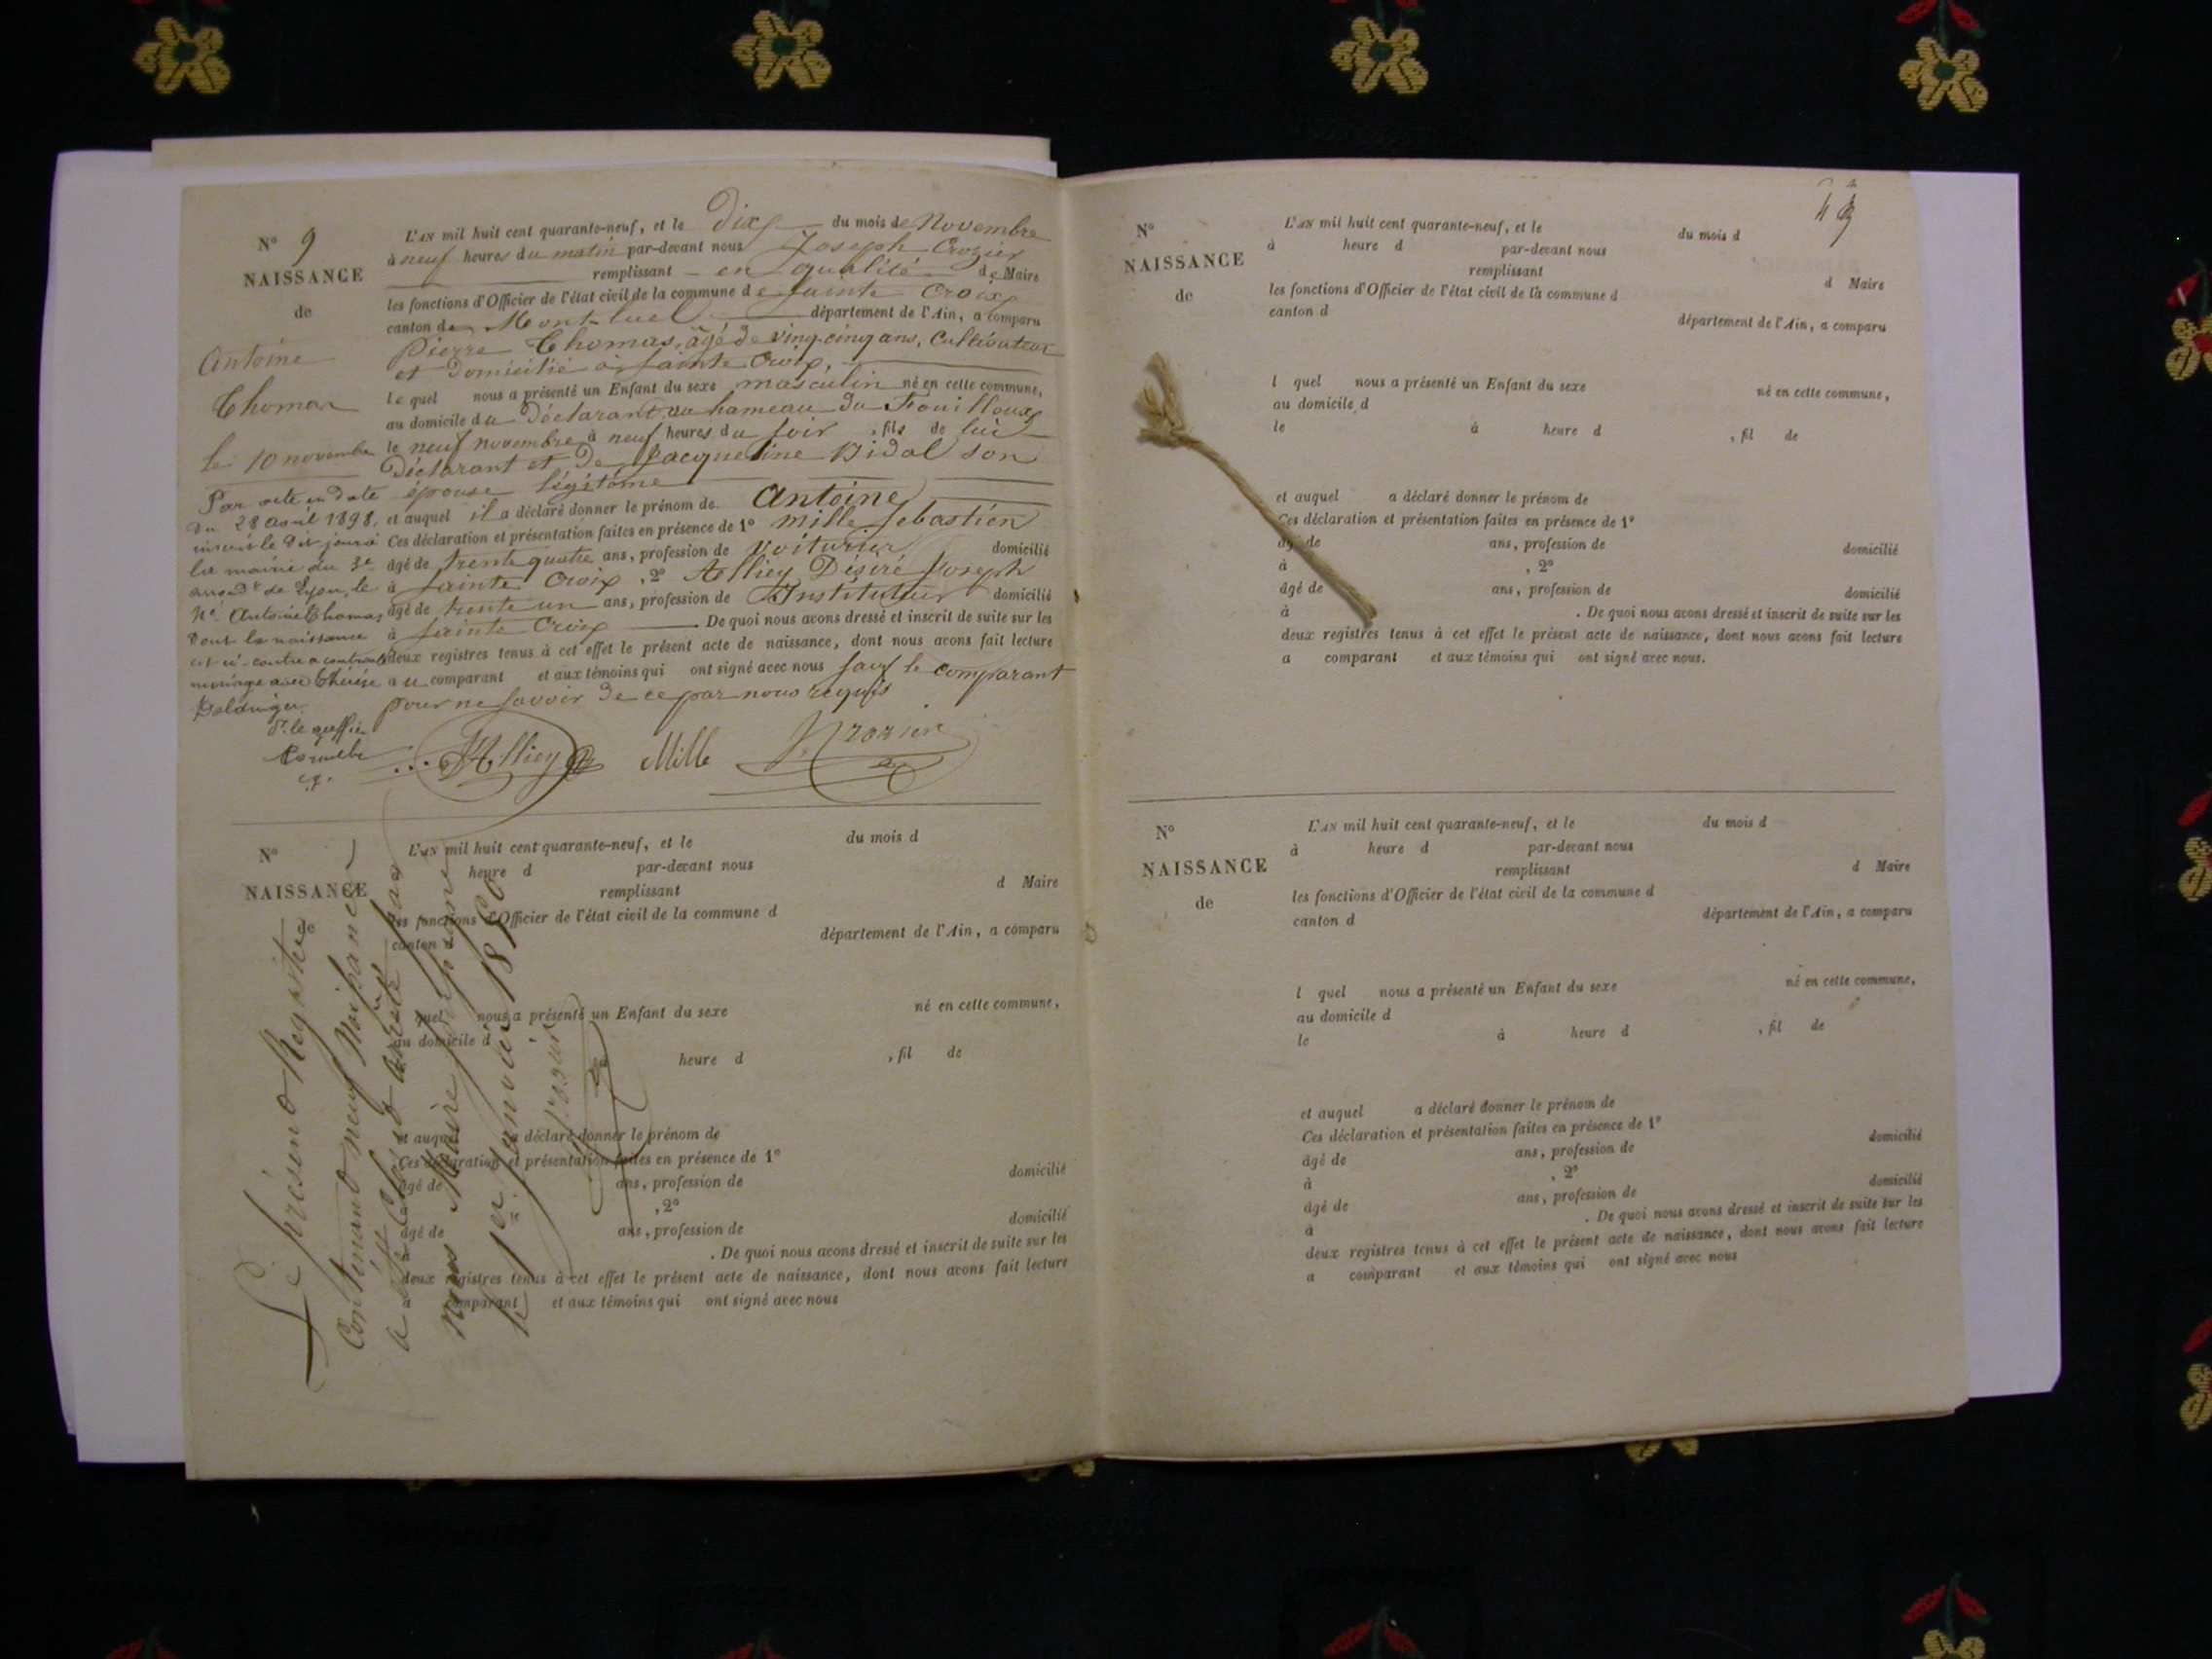 N° 9
NAISSANCE
de
Antoine
Thomas
le 10 novembre
Par acte en date
du 28 avril 1898,
inscrit le dit jour à
la mairie du 3e
arrondt de Lyon, le
né Antoine Thomas
dont la naissance
est ci-contre a contracté
mariage avec Thérèse
P. le greffier
L'AN mil huit cent quarante-neuf, et le Dix du mois de Novembre
à neuf heures du matin par-devant nous Joseph Crozier
remplissant en qualité de Maire
les fonctions d'Officier de l'état civil de la commune de Sainte Croix
canton de Montluel département de l'Ain, a comparu
Pierre Thomas, âgé de vingt cinq ans, Cultivateur
et domicilié à Sainte Croix,
lequel nous a présenté un Enfant du sexe masculin né en cette commune,
au domicile du Déclarant au hameau du Fouilloux
le neuf novembre à neuf heures du soir, fils de lui
Déclarant et de Jacqueline Vidal son
épouse légitime
et auquel il a déclaré donner le prénom de Antoine
Ces déclaration et présentation faites en présence de 1° Mille Sebastien
âgé de trente quatre ans, profession de Voiturier domicilié
à Sainte Croix, 2° Alliey Désiré Joseph
âgé de trente un ans, profession de Instituteur domicilié
à Sainte Croix. De quoi nous avons dressé et inscrit de suite sur les
deux registres tenus à cet effet le présent acte de naissance, dont nous avons fait lecture
au comparant et aux témoins qui ont signé avec nous sauf le comparant
pour ne savoir de ce par nous requis
Alliey Mille Crozier
N°
NAISSANCE
de
L'AN mil huit cent quarante-neuf, et le du mois d
heure d par-devant nous
remplissant d Maire
les fonctions d'Officier de l'état civil de la commune d
canton d département de l'Ain, a comparu
quel nous a présenté un Enfant du sexe né en cette commune,
au domicile d
à heure d , fil de
et auquel a déclaré donner le prénom de
Ces déclaration et présentation faites en présence de 1°
âgé de ans, profession de domicilié
, 2°
âgé de ans, profession de domicilié
. De quoi nous avons dressé et inscrit de suite sur les
deux registres tenus à cet effet le présent acte de naissance, dont nous avons fait lecture
comparant et aux témoins qui ont signé avec nous
Le présent Registre
Contenant neuf Naissances
a été Clos et arrêté par
nous Maire soussigné
le 1er Janvier 1850
Crozier
N°
NAISSANCE
de
L'AN mil huit cent quarante-neuf, et le du mois d
à heure d par-devant nous
remplissant d Maire
les fonctions d'Officier de l'état civil de la commune d
canton d département de l'Ain, a comparu
l quel nous a présenté un Enfant du sexe né en cette commune,
au domicile d
le à heure d , fil de
et auquel a déclaré donner le prénom de
Ces déclaration et présentation faites en présence de 1°
âgé de ans, profession de domicilié
à , 2°
âgé de ans, profession de domicilié
à . De quoi nous avons dressé et inscrit de suite sur les
deux registres tenus à cet effet le présent acte de naissance, dont nous avons fait lecture
a comparant et aux témoins qui ont signé avec nous.
N°
NAISSANCE
de
L'AN mil huit cent quarante-neuf, et le du mois d
à heure d par-devant nous
remplissant d Maire
les fonctions d'Officier de l'état civil de la commune d
canton d département de l'Ain, a comparu
l quel nous a présenté un Enfant du sexe né en cette commune,
au domicile d
le à heure d , fil de
et auquel a déclaré donner le prénom de
Ces déclaration et présentation faites en présence de 1°
âgé de ans, profession de domicilié
à , 2°
âgé de ans, profession de domicilié
à . De quoi nous avons dressé et inscrit de suite sur les
deux registres tenus à cet effet le présent acte de naissance, dont nous avons fait lecture
a comparant et aux témoins qui ont signé avec nous